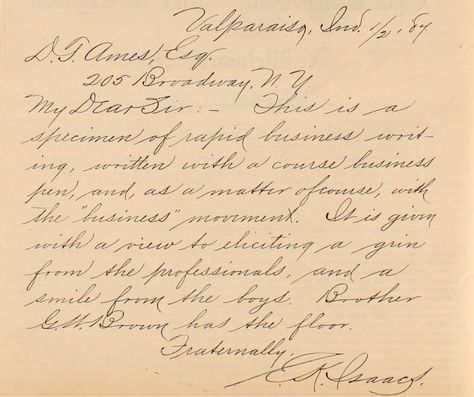 Valparaiso, Ind. 1/2, '84
D. T. Ames, Esq.
205 Broadway, N. Y.
My Dear Sir:- This is a
specimen of rapid business writ-
ing, written with a course business
pen, and, as a matter of course, with
the "business" movement. It is given
with a view to eliciting a grin
from the professionals, and a
smile from the boys. Brother
G. W. Brown has the floor.
Fraternally,
E. K. Isaacs.